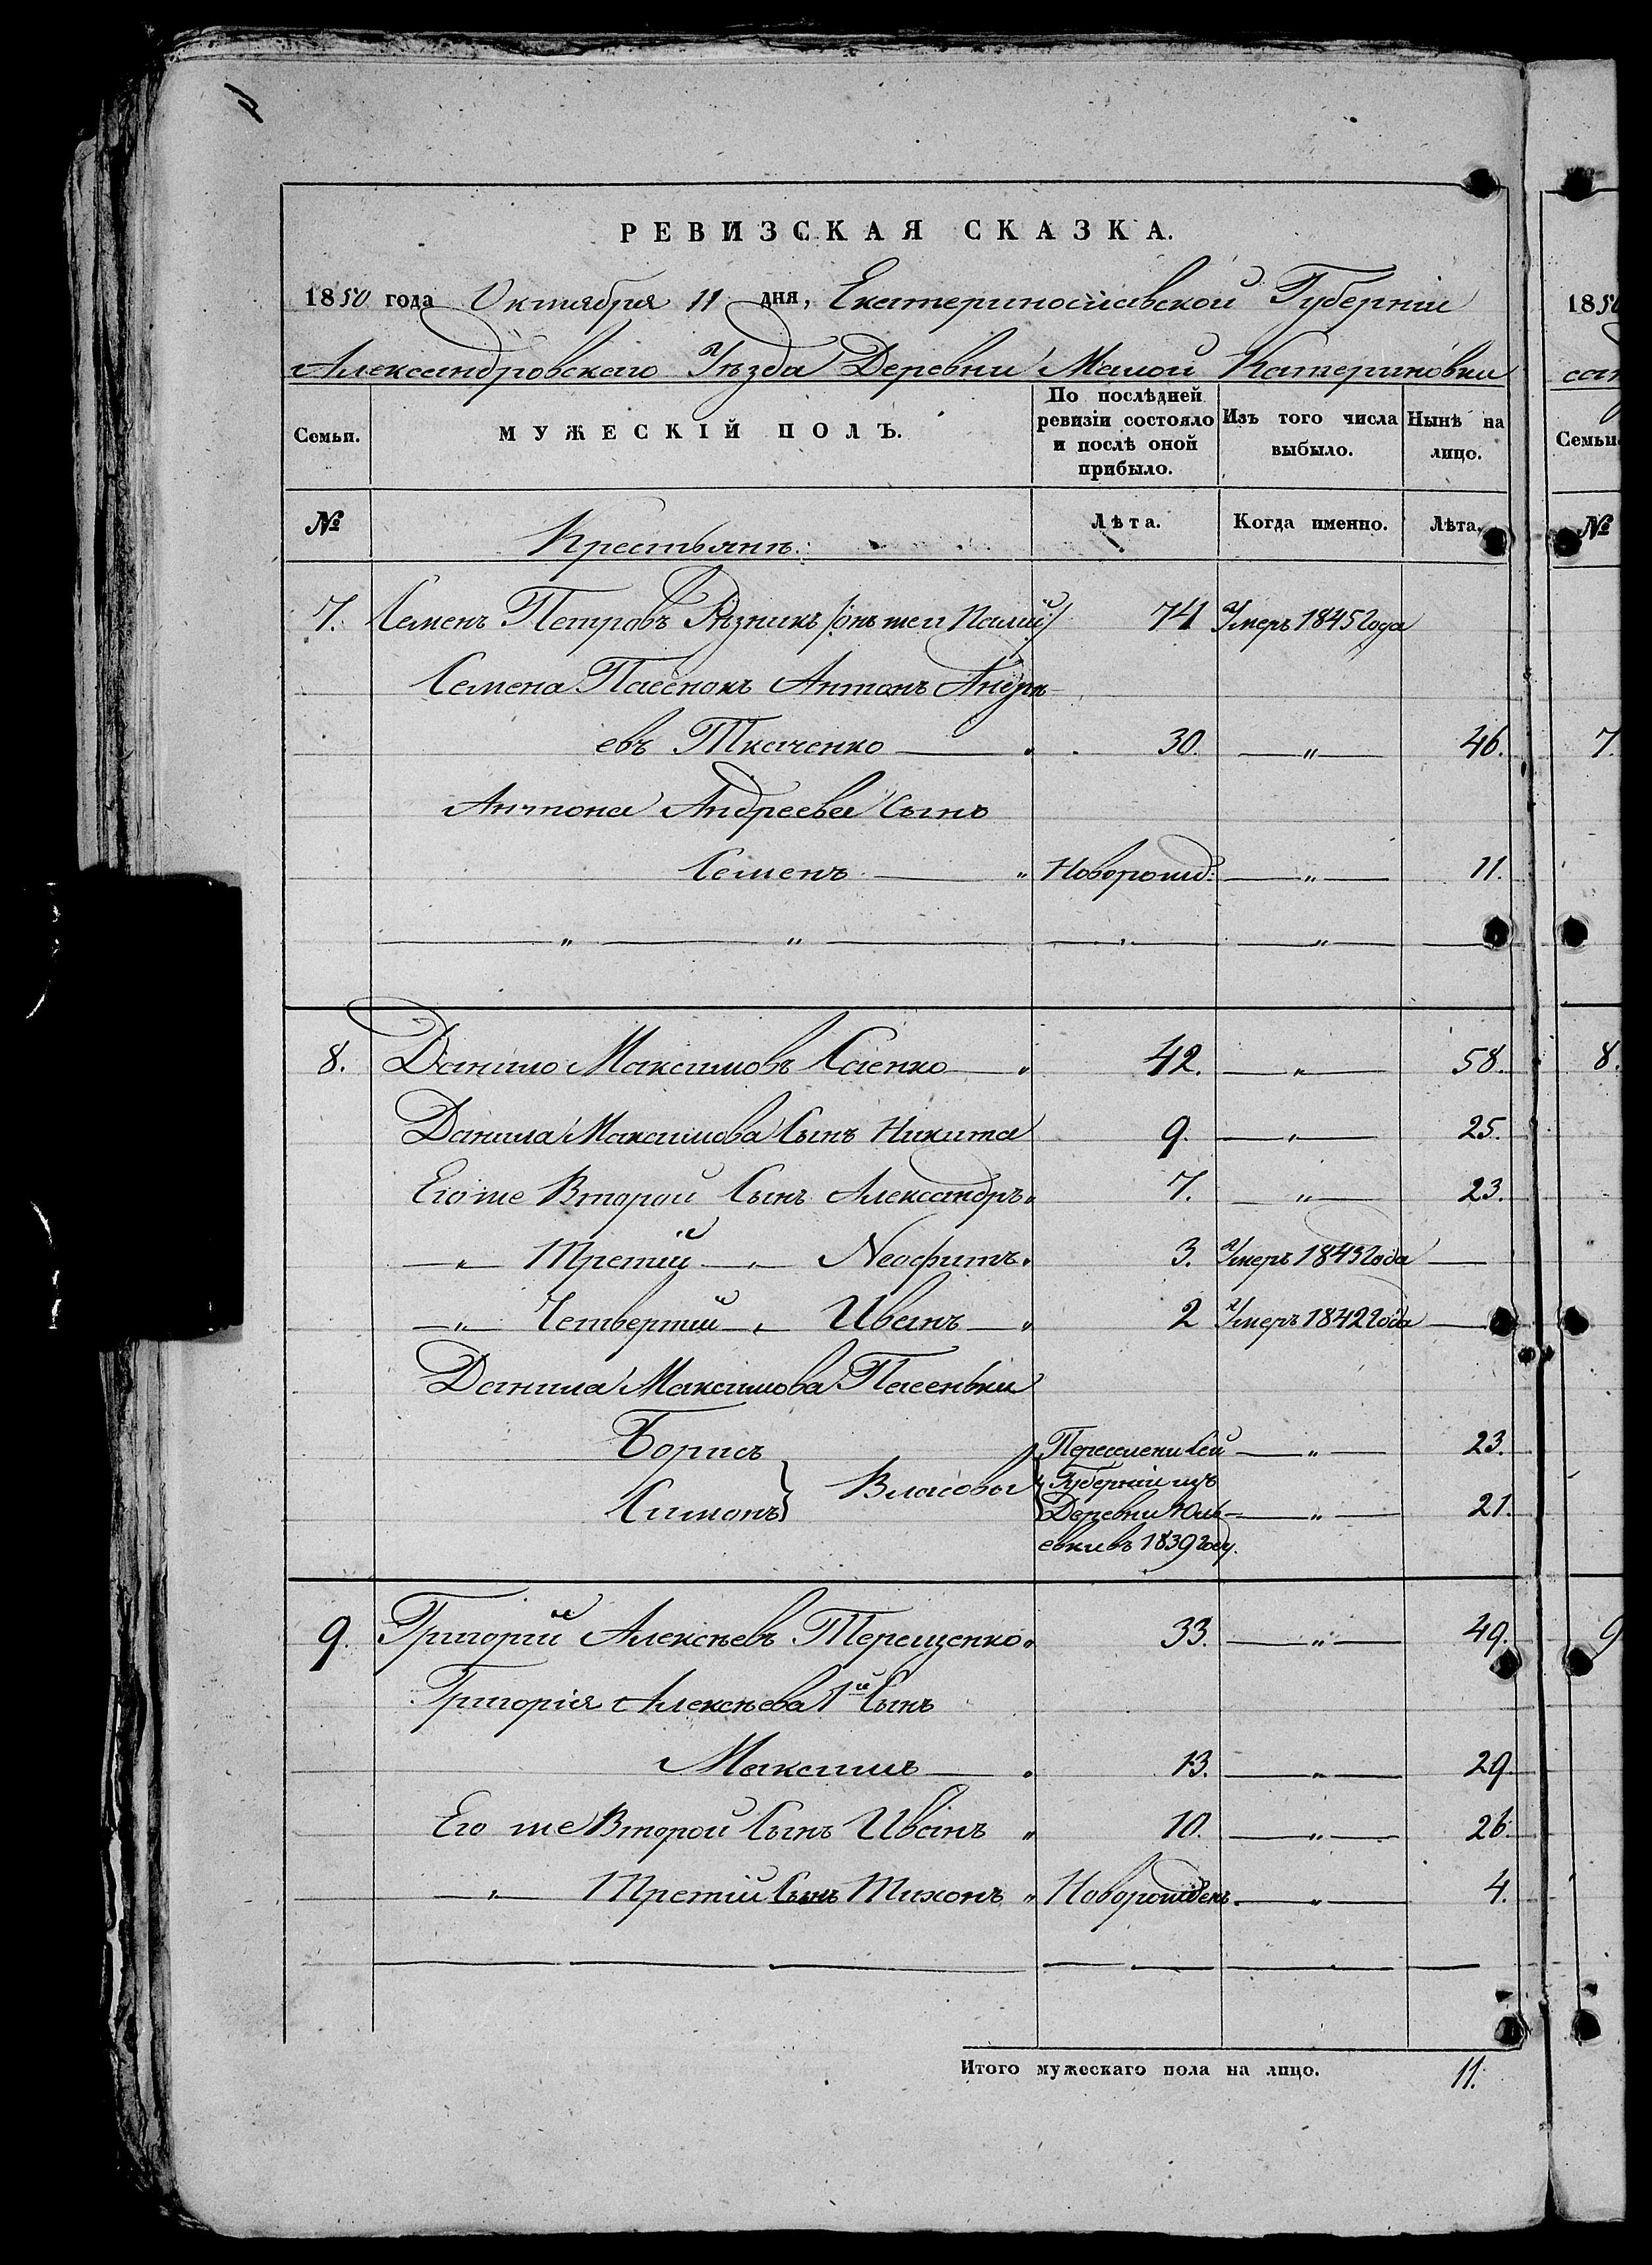 РЕВИЗСКАЯ СКАЗКА.
1850 года Октября 11 дня, Екатеринославской Губерніи
Александровскаго Уѣзда Деревни Малой Катериновки
Семьи. МУЖЕСКІЙ ПОЛЪ. По послѣдней ревизіи состояло и послѣ оной прибыло. Изъ того числа выбыло. Нынѣ на лицо.
№ Крестьянъ: Лѣта. Когда именно. Лѣта.
7. Семенъ Петровъ Рѣзникъ /онъ же и Палій/ 74 Умеръ 1845 года
Семена Пасенокъ Антонъ Андре-
евъ Ткаченко 30. — „ — 46.
Антона Андреева Сынъ
Семенъ „ Новорожд: — „ — 11.
8. Данило Максимовъ Саенко „ 42. — „ — 58.
Данила Максимова Сынъ Никита 9. — „ — 25.
Его же Второй Сынъ Александръ „ 7. — „ — 23.
— „ Третій — „ Неофитъ „ 3. Умеръ 1843 года —
— „ Четвертій — „ Иванъ — „ 2 Умеръ 1842 года —
Данила Максимова Пасенки
Борисъ Переселени сей — „ — 23.
Власовы Губерніи изъ
Симонъ Деревни Юль- — „ — 21.
евки въ 1839 году.
9. Григорій Алексѣевъ Терещенко „ 33. — „ — 49.
Григорія Алексѣева 1й Сынъ
Максимъ — „ 13. — „ — 29
Его же Второй Сынъ Иванъ „ 10. — „ — 26.
— „ — Третій Сынъ Тихонъ „ Новорожденъ. — „ — 4.
Итого мужескаго пола на лицо. 11.
1850
Семьи
№
7.
8.
9